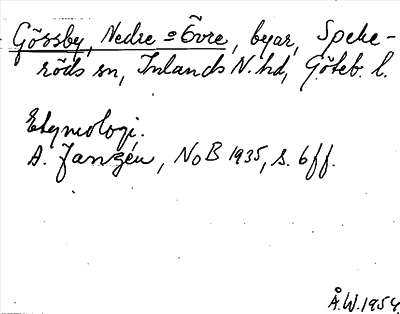 Gössby, Nedre o Övre, byar, Speke-
röds sn, Inlands N. hd, Göteb. l.
Etymologi.
A. Janzén, NoB 1935, s. 6 ff.
Å.W. 1954.